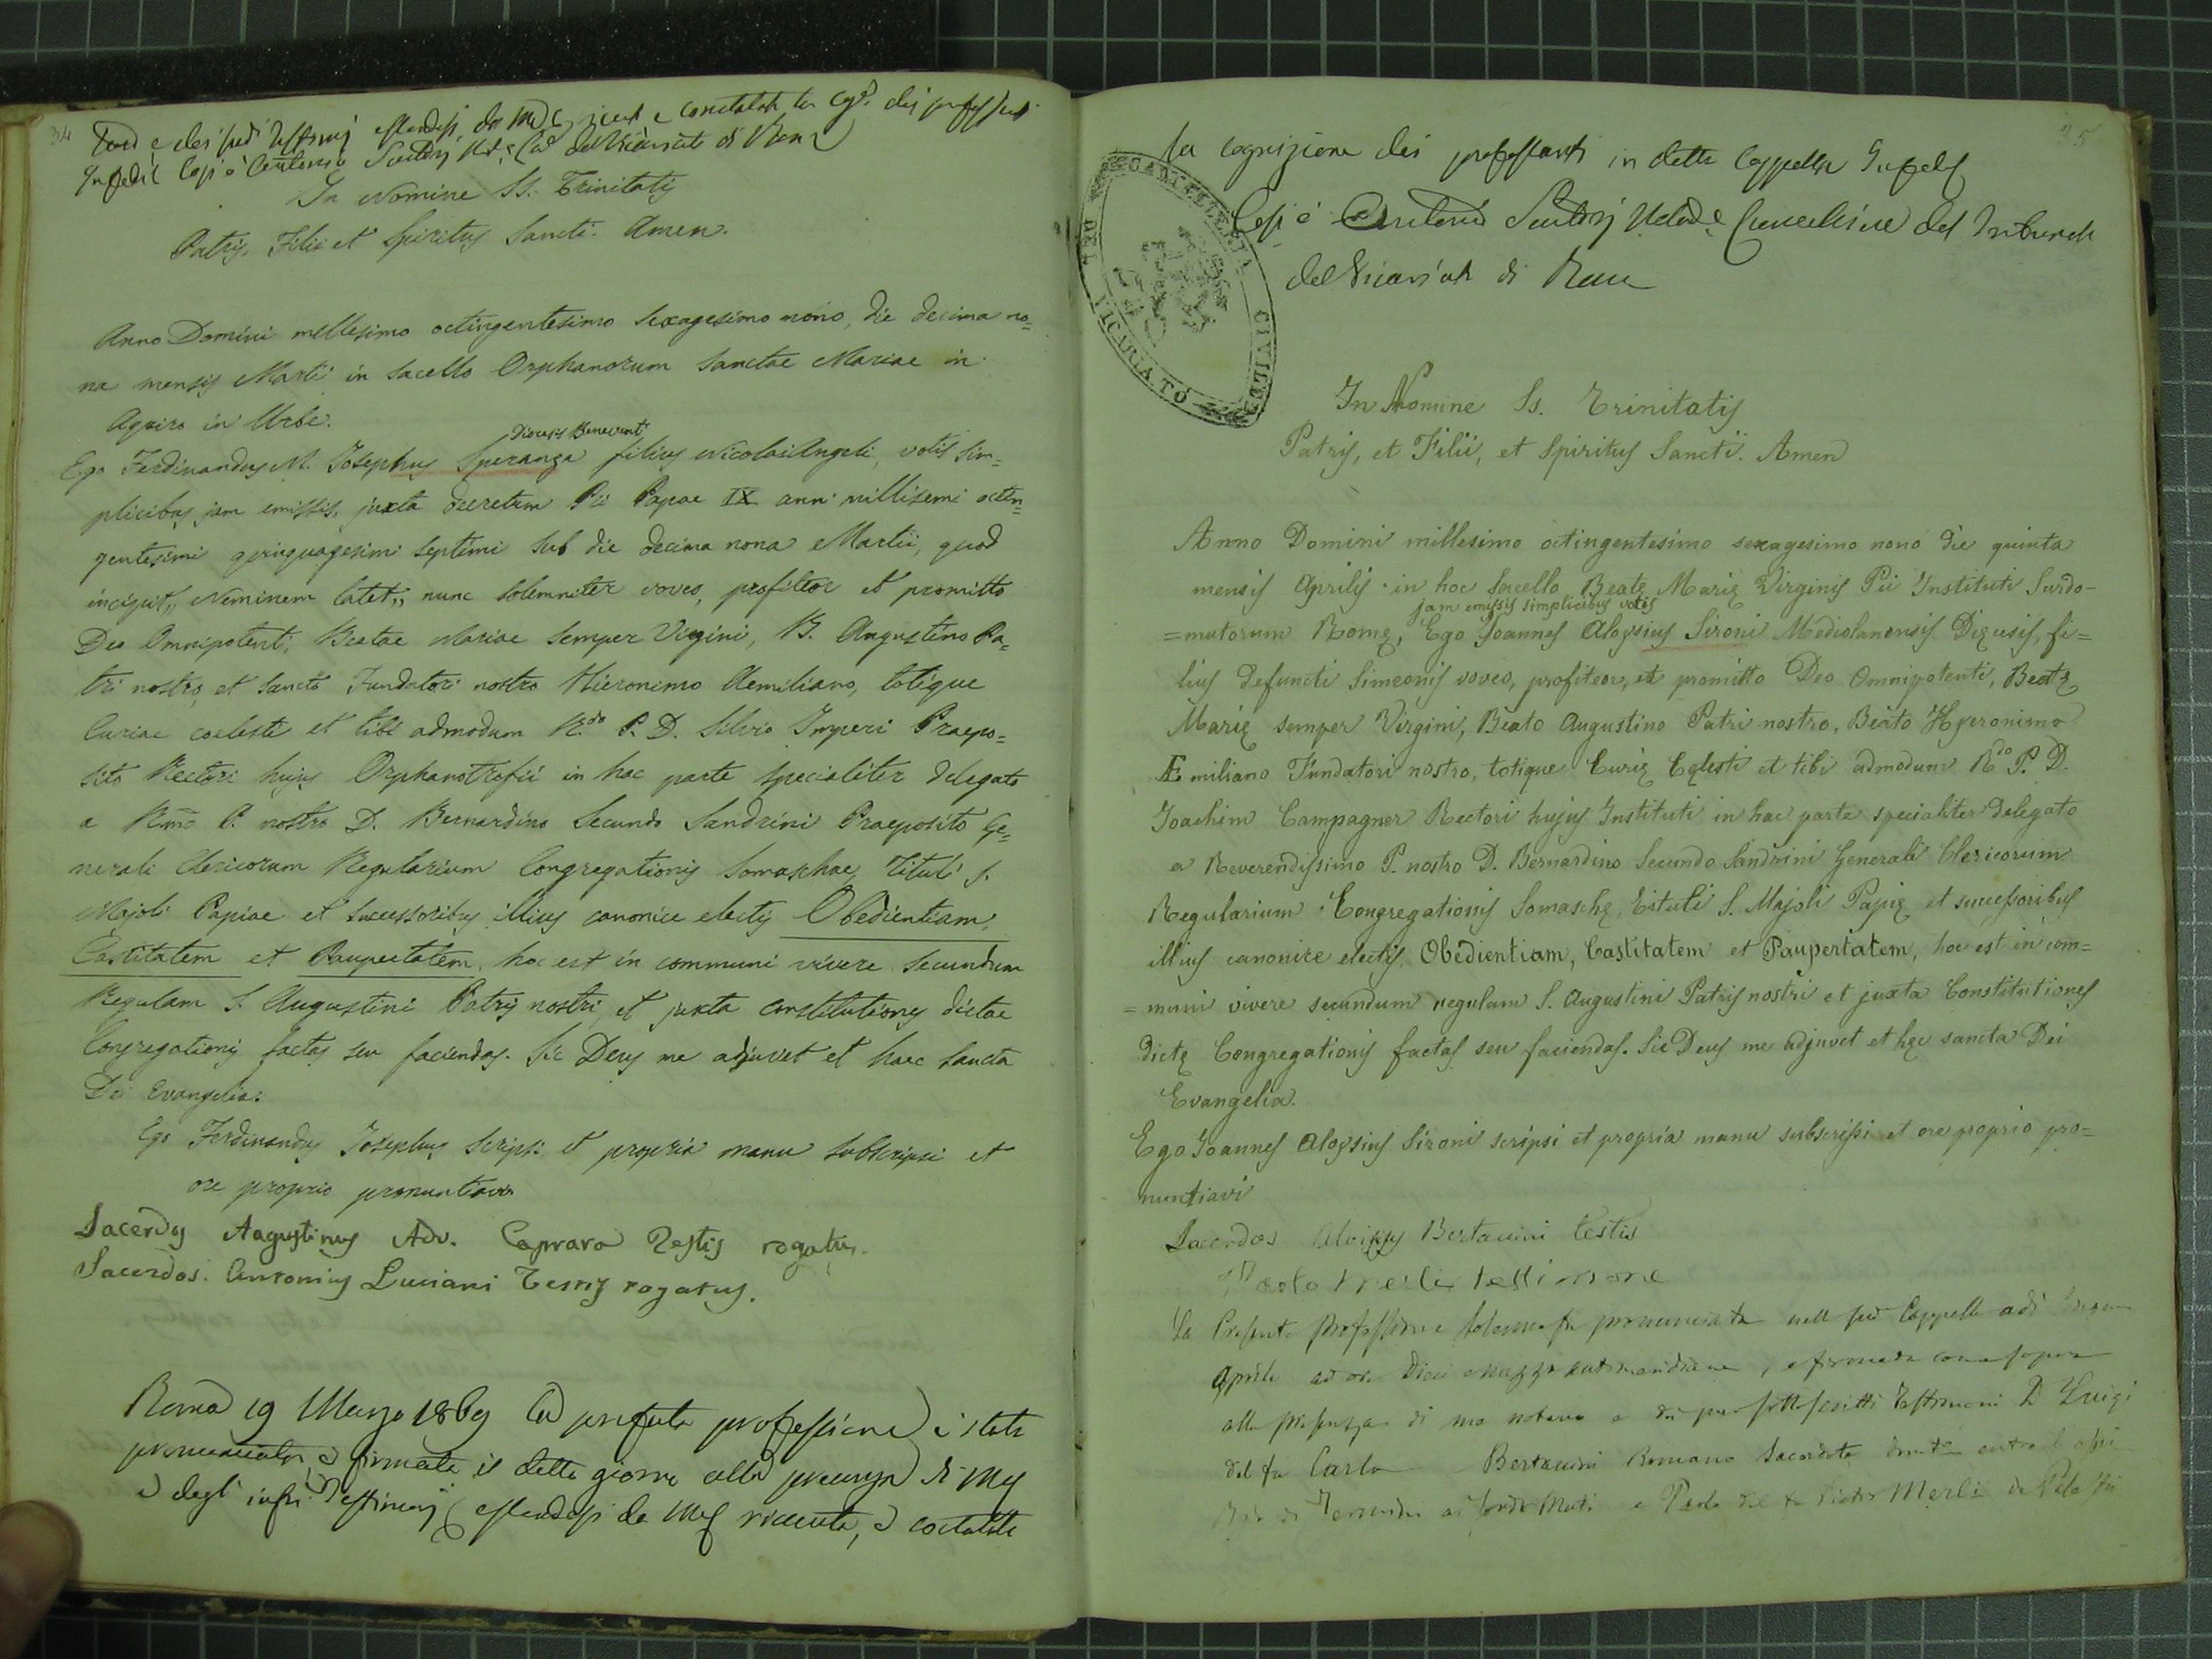 34
e dei
In fede Copi Centenio Not. e del Vicariato di Roma
In Nomine SS. Trinitatis
Patris, Filii et Spiritus Sancti. Amen.
Anno Domini mellesimo octingentesimo sexagesimo nono, die decima no=
na mensis Martii in sacello Orphanorum Sanctae Mariae in
Aquiro in Urbe.
Diocesis Benevent.
Ego Ferdinandus M. Josephus Speranza filius Nicolai Angeli, votis sim=
plicibus jam emissis, juxta decretum Pii Papae IX anni millisemi octin=
gentesimi quinquagesimi septimi sub die decima nona Martii, quod
incipit „Neminem latet„ nunc solemniter voveo, profiteor et promitto
Deo Omnipotenti, Beatae Mariae semper Virgini, B. Augustino Pa=
tri nostro, et Sancto Fundatori nostro Hieronimo Aemiliano, totique
Curiae coelesti et tibi admodum R.do P. D. Silvio Imperi Praepo=
sito Rectori hujus Orphanotrofii in hac parte specialiter delegato
a Rmo P. nostro D. Bernardino Secundo Sandrini Praeposito Ge=
nerali Clericorum Regularium Congregationis Somaschae, Tituli S.
Majoli Papiae et successoribus illius canonice electis Obedientiam,
Castitatem et Paupertatem, hoc est in communi vivere secundum
Regulam S. Augustini Patris nostri, et juxta constitutiones dictae
Congregationis factas seu faciendas. Sic Deus me adjuvet et haec Sancta
Dei Evangelia.
Ego Ferdinandus Josephus scripsi et propria manu subscripsi et
ore proprio pronuntiavi
Sacerdos Augustinus Adv. Caprara Testis rogatus.
Sacerdos Antonius Luciani Testis rogatus.
Roma 19 Marzo 1869 La professione è stata
pronunciata, e firmata il detto giorno alla presenza di me
e degli testimonj da me
25
la cognizione dei professanti in detta Cappella In fede
Copi Centenio Not. e Cancelliere del Tribunale
del Vicariato di Roma
CANCELLERIA CIVILE DEL VICARIATO
In Nomine Ss. Trinitatis
Patris, et Filii, et Spiritus Sancti. Amen
Anno Domini millesimo octingentesimo sexagesimo nono die quinta
mensis Aprilis in hoc sacello Beatę Marię Virginis Pii Instituti Surdo-
jam emissis simplicibus votis
=mutorum Romę, Ego Joannes Aloysius Sironi Mediolanensis Dięcesis, fi=
lius defuncti Simeonis voveo, profiteor, et promitto Deo Omnipotenti, Beatę
Marię semper Virgini, Beato Augustino Patri nostro, Beato Hyeronimo
Æmiliano Fundatori nostro, totique Curię Cęlesti et tibi admodum R.do P. D.
Joachim Campagner Rectori hujus Instituti in hac parte specialiter delegato
a Reverendissimo P. nostro D. Bernardino Secundo Sandrini Generali Clericorum
Regularium Congregationis Somaschę, Tituli S. Majoli Papię et successoribus
illius canonice electis, Obedientiam, Castitatem et Paupertatem, hoc est in com=
=muni vivere secundum regulam S. Augustini Patris nostri et juxta Constitutiones
dictę Congregationis factas seu faciendas. Sic Deus me adjuvet et hęc sancta Dei
Evangelia.
Ego Joannes Aloysius Sironi scripsi et propria manu subscripsi et ore proprio pro=
nuntiavi
Sacerdos Bertacini testis
Paolo Merli testimone
La Presente Professione solenne fu pronunciata nella Cappella adi
Aprile ad ore Dieci e mezza antimeridiane, e firmata come sopra
alla presenza di me notaro e sottoscritti Testimoni D Luigi
del fu Carlo Bertacini Romano Sacerdote
e Paolo del fu Pietro Merli